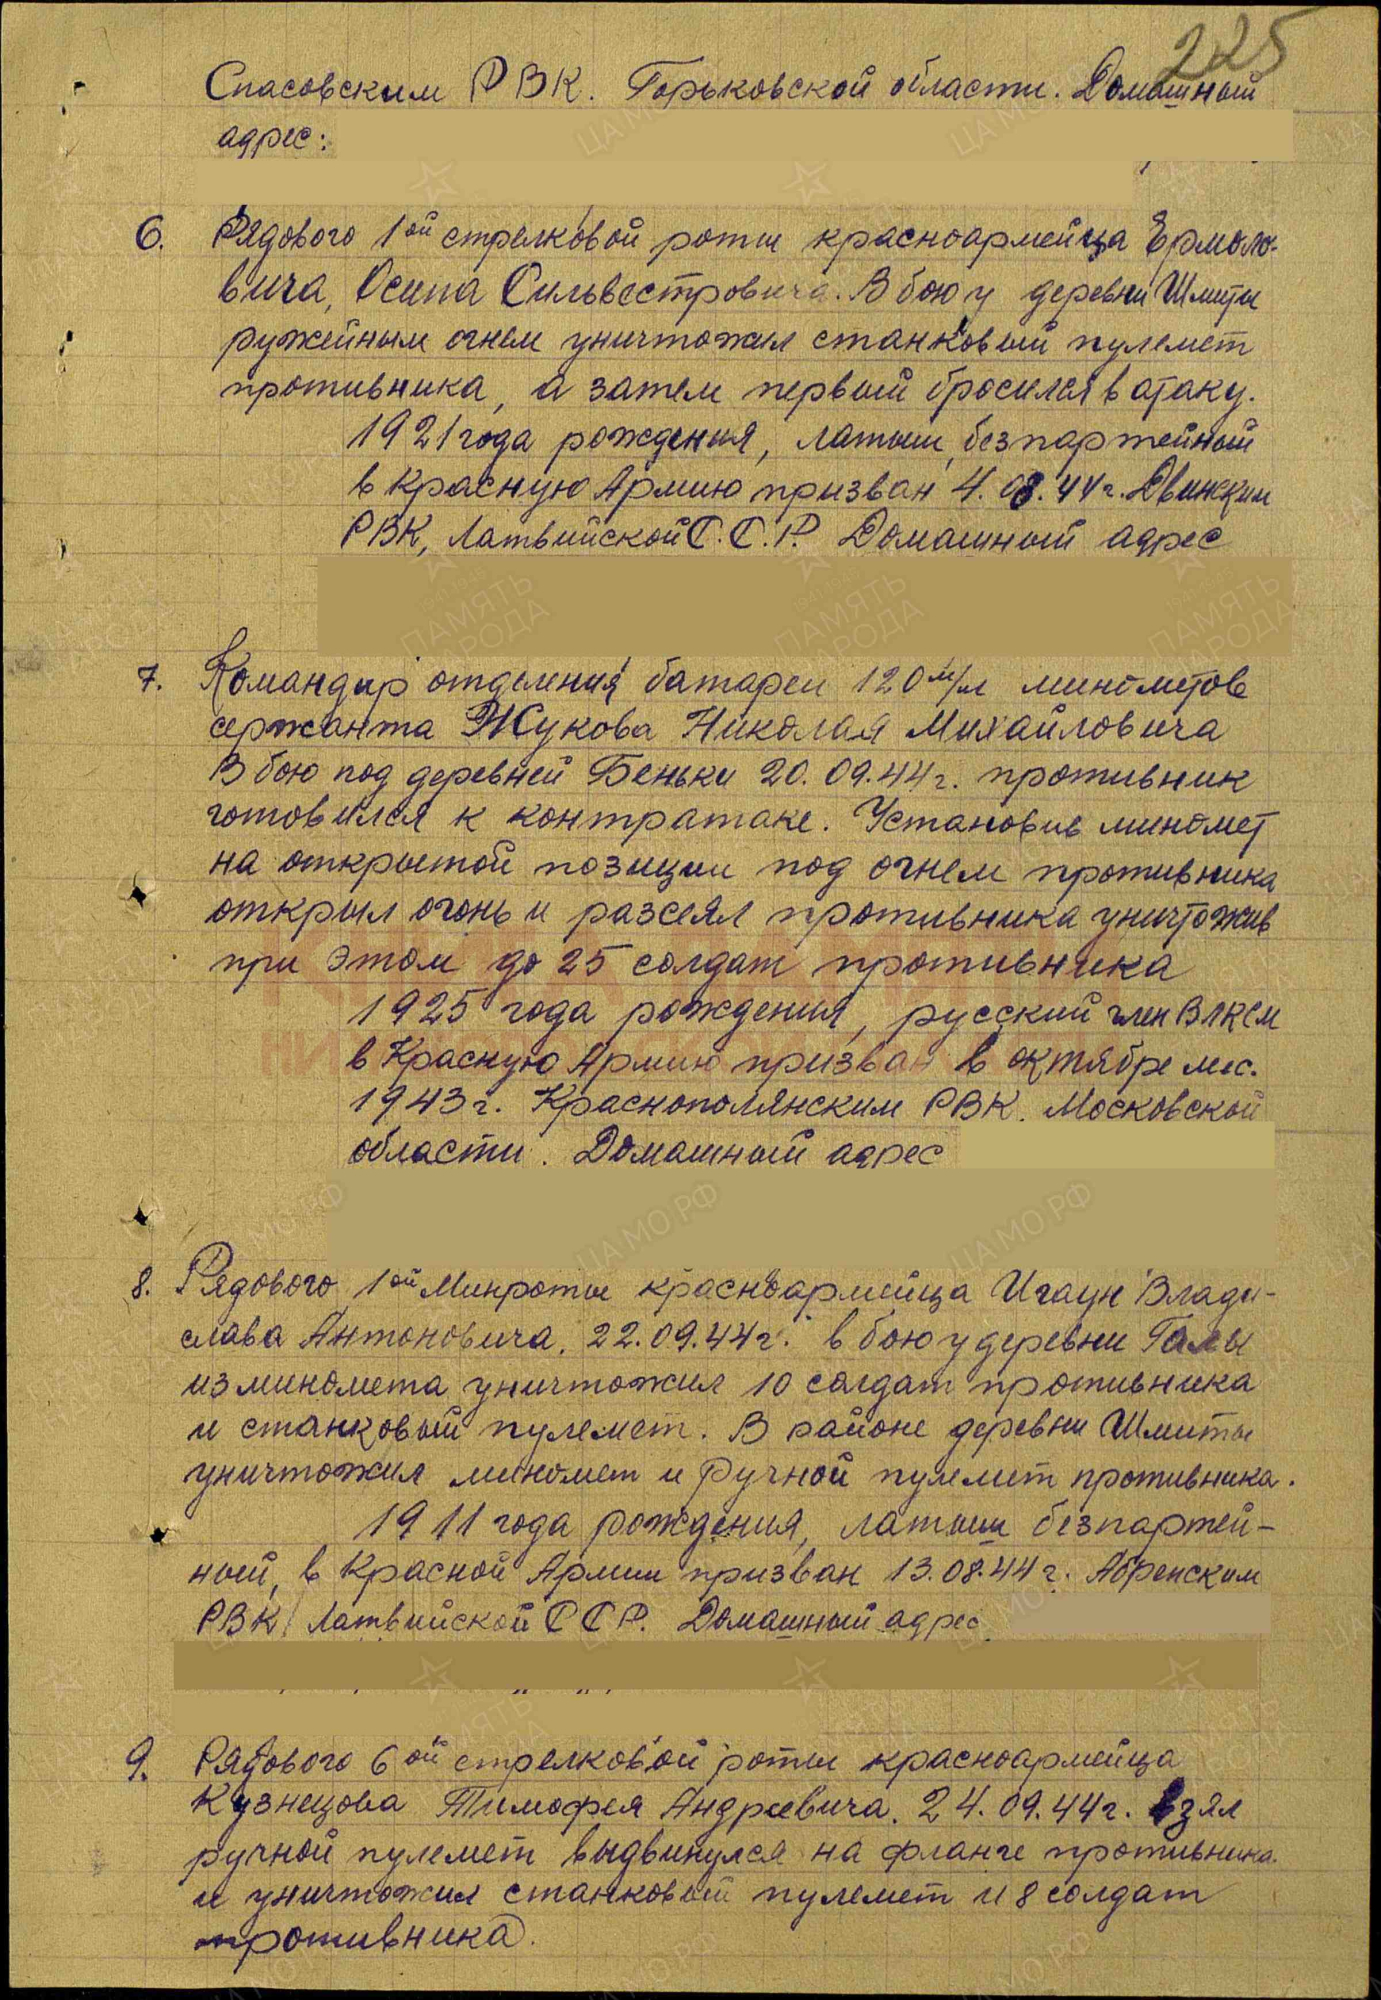 225
Спасовским РВК. Горьковской области. Домашный
адрес:
6. Рядового 1ой стрелковой роты красноармейца Ермоло-
вича, Осипа Сильвестровича. В бою у деревни Шмиты
ружейным огнем уничтожил станковый пулемет
противника, а затем первый бросился в атаку.
1921 года рождения, латыш, безпартейный
в Красную Армию призван 4.08.44г. Двинским
РВК, Латвийской С.С.Р. Домашный адрес
7. Командир отделения батареи 120 м/м минометов
сержанта Жукова Николая Михайловича
В бою под деревней Беньки 20.09.44г. противник
готовился к контратаке. Установив миномет
на открытой позиции под огнем противника
открыл огонь и разсеял противника уничтожив
при этом до 25 солдат противника
1925 года рождения, русский член ВЛКСМ
в Красную Армию призван в октябре мес.
1943г. Краснополянским РВК. Московской
области. Домашный адрес
8. Рядового 1ой Минроты красноармейца Игаун Влади-
слава Антоновича. 22.09.44г. в бою у деревни Галы
из миномета уничтожил 10 солдат противника
и станковый пулемет. В районе деревни Шмиты
уничтожил миномет и ручной пулемет противника.
1911 года рождения, латыш безпартей-
ный, в Красной Армии призван 13.08.44г. Абренским
РВК Латвийской ССР. Домашный адрес
9. Рядового 6ой стрелковой роты красноармейца
Кузнецова Тимофея Андреевича. 24.09.44г. взял
ручной пулемет выдвинулся на фланге противника
и уничтожил станковый пулемет и 8 солдат
противника.